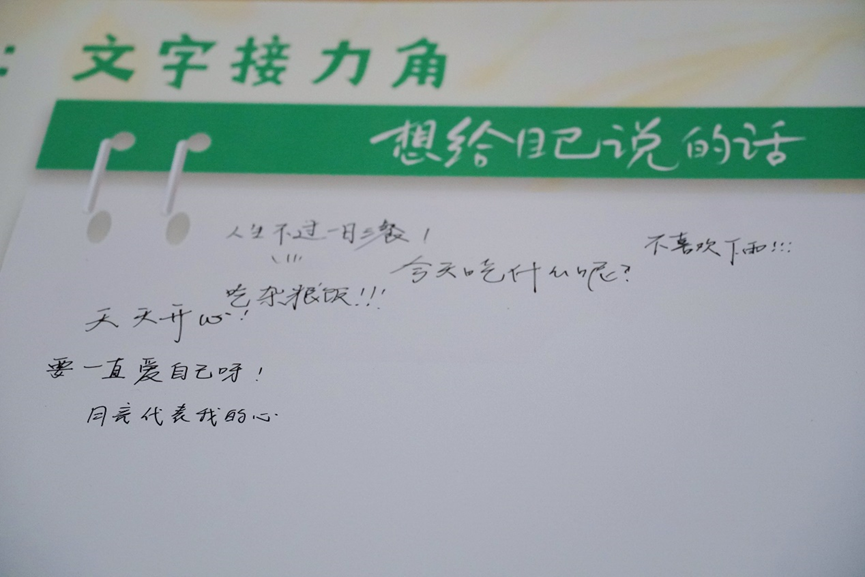 ：文字接力角
想给自己说的话
人生不过一日三餐！
不喜欢下雨!!!
今天吃什么呢？
吃杂粮饭!!!
天天开心！
要一直爱自己呀！
月亮代表我的心